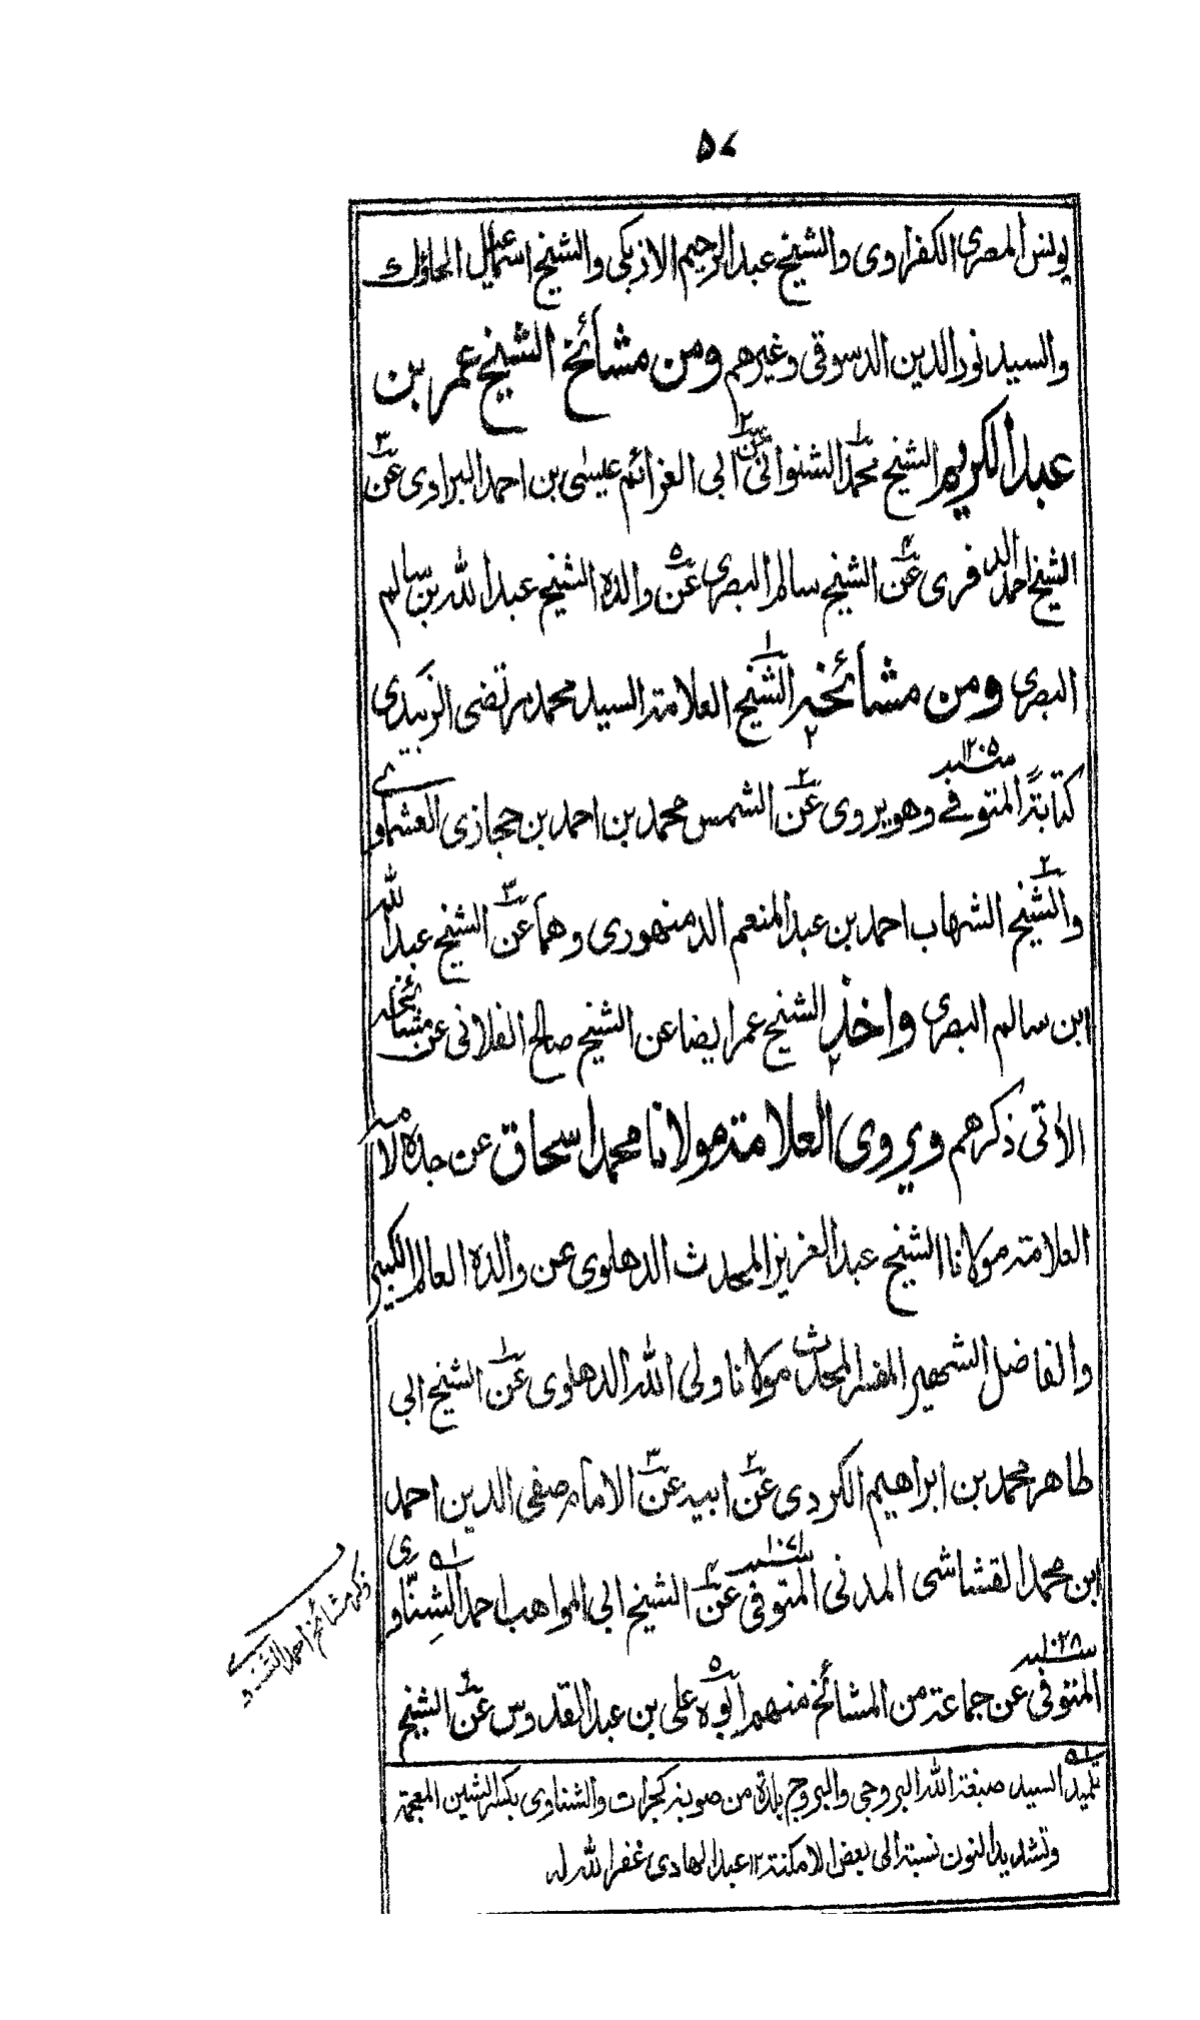 ۵۷
يونس المصرى الكفراوى والشيخ عبد الرحيم الازبكى والشيخ اسماعيل
والسيد نور الدين الدسوقى وغيرهم ومن مشائخ الشيخ عمر بن
عبد الكريم الشيخ محمد الشنوانى عن ابى العزائم عيسى بن احمد البراوى عن
الشيخ احمد الدفرى عن الشيخ سالم البصرى عن والده الشيخ عبد الله بن سالم
البصرى ومن مشائخه الشيخ العلامة السيد محمد مرتضى الزبيدى
كتابةً المتوفے سنه ۱۲۰۵ وهو يروى عن الشمس محمد بن احمد بن حجازى العشماوے
والشيخ الشهاب احمد بن عبد المنعم الدمنهورى وهما عن الشيخ عبد الله
ابن سالم البصرى واخذ الشيخ عمر ايضا عن الشيخ صالح الفلانى عن مشائخه
الأتى ذكرهم ويروى العلامة مولانا محمد اسحاق عن جده لامه
العلامة مولانا الشيخ عبد العزيز المحدث الدهلوى عن والده العالم الكبير
والفاضل الشهير المفسر المحدث مولانا ولى الله الدهلوى عن الشيخ ابى
طاهر محمد بن ابراهيم الكردى عن ابيه عن الامام صفى الدين احمد
ابن محمد القشاشى المدنى المتوفى سنه ۱۰۷۱ عن الشيخ ابى المواهب احمد الشِنّاوى
المتوفى سنه ۱۰۲۸ عن جماعة من المشائخ منهم ابوه على بن عبد القدوس عن الشيخ
ذكر مشائخ احمد الشناوى
تلميذ السيد صبغة الله البروجى والبروج بلدة من صوبة كجرات والشناوى بكسر الشين المعجمة
وتشديد النون نسبة الى بعض الامكنة ۱۲ عبد الهادى غفر الله له